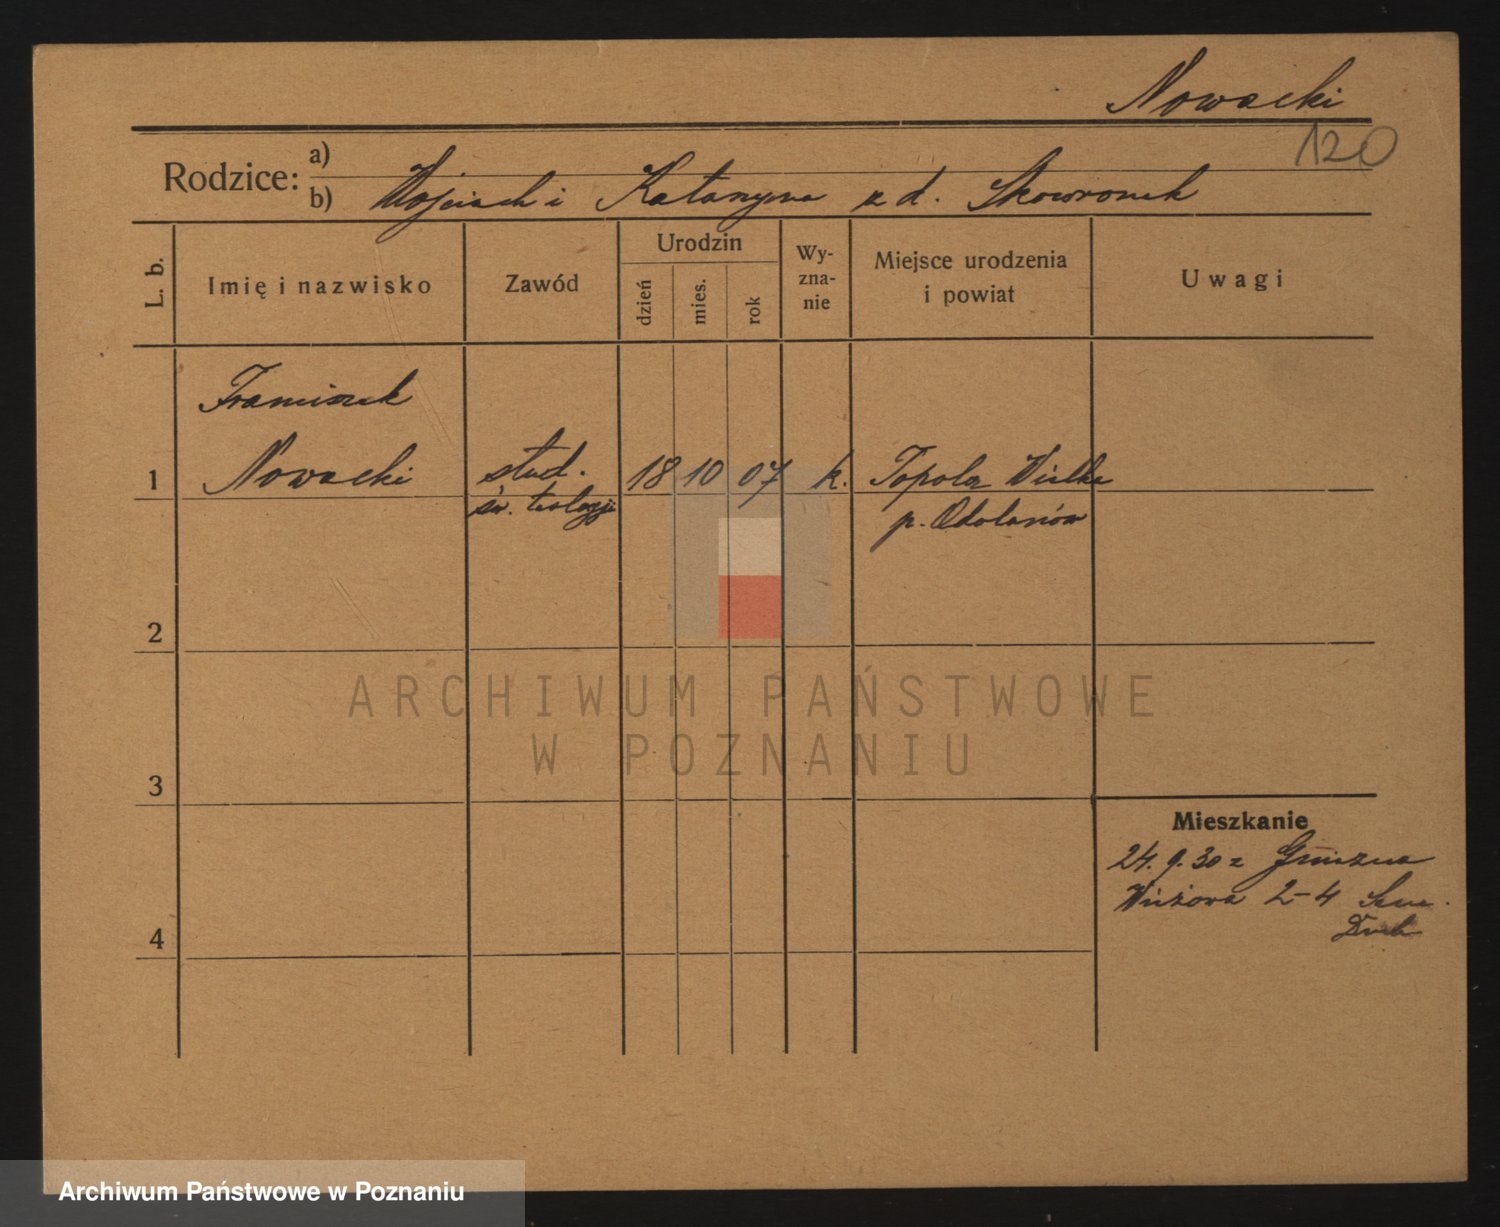 Nowacki
120
Rodzice:
a)
b) Wojciech i Katarzyna z d. Skowronek
L. b.
Imię i nazwisko
Zawód
Urodzin
dzień
mies.
rok
Wy-
zna-
nie
Miejsce urodzenia
i powiat
Uwagi
Franciszek
1 Nowacki stud. 18 10 07 k. Topola Wielka
św. teologji p. Odolanów
2
ARCHIWUM PAŃSTWOWE
W POZNANIU
3
Mieszkanie
24. 9. 30 z Gniezna
Wieżowa 2-4 Sem.
Duch
4
Archiwum Państwowe w Poznaniu